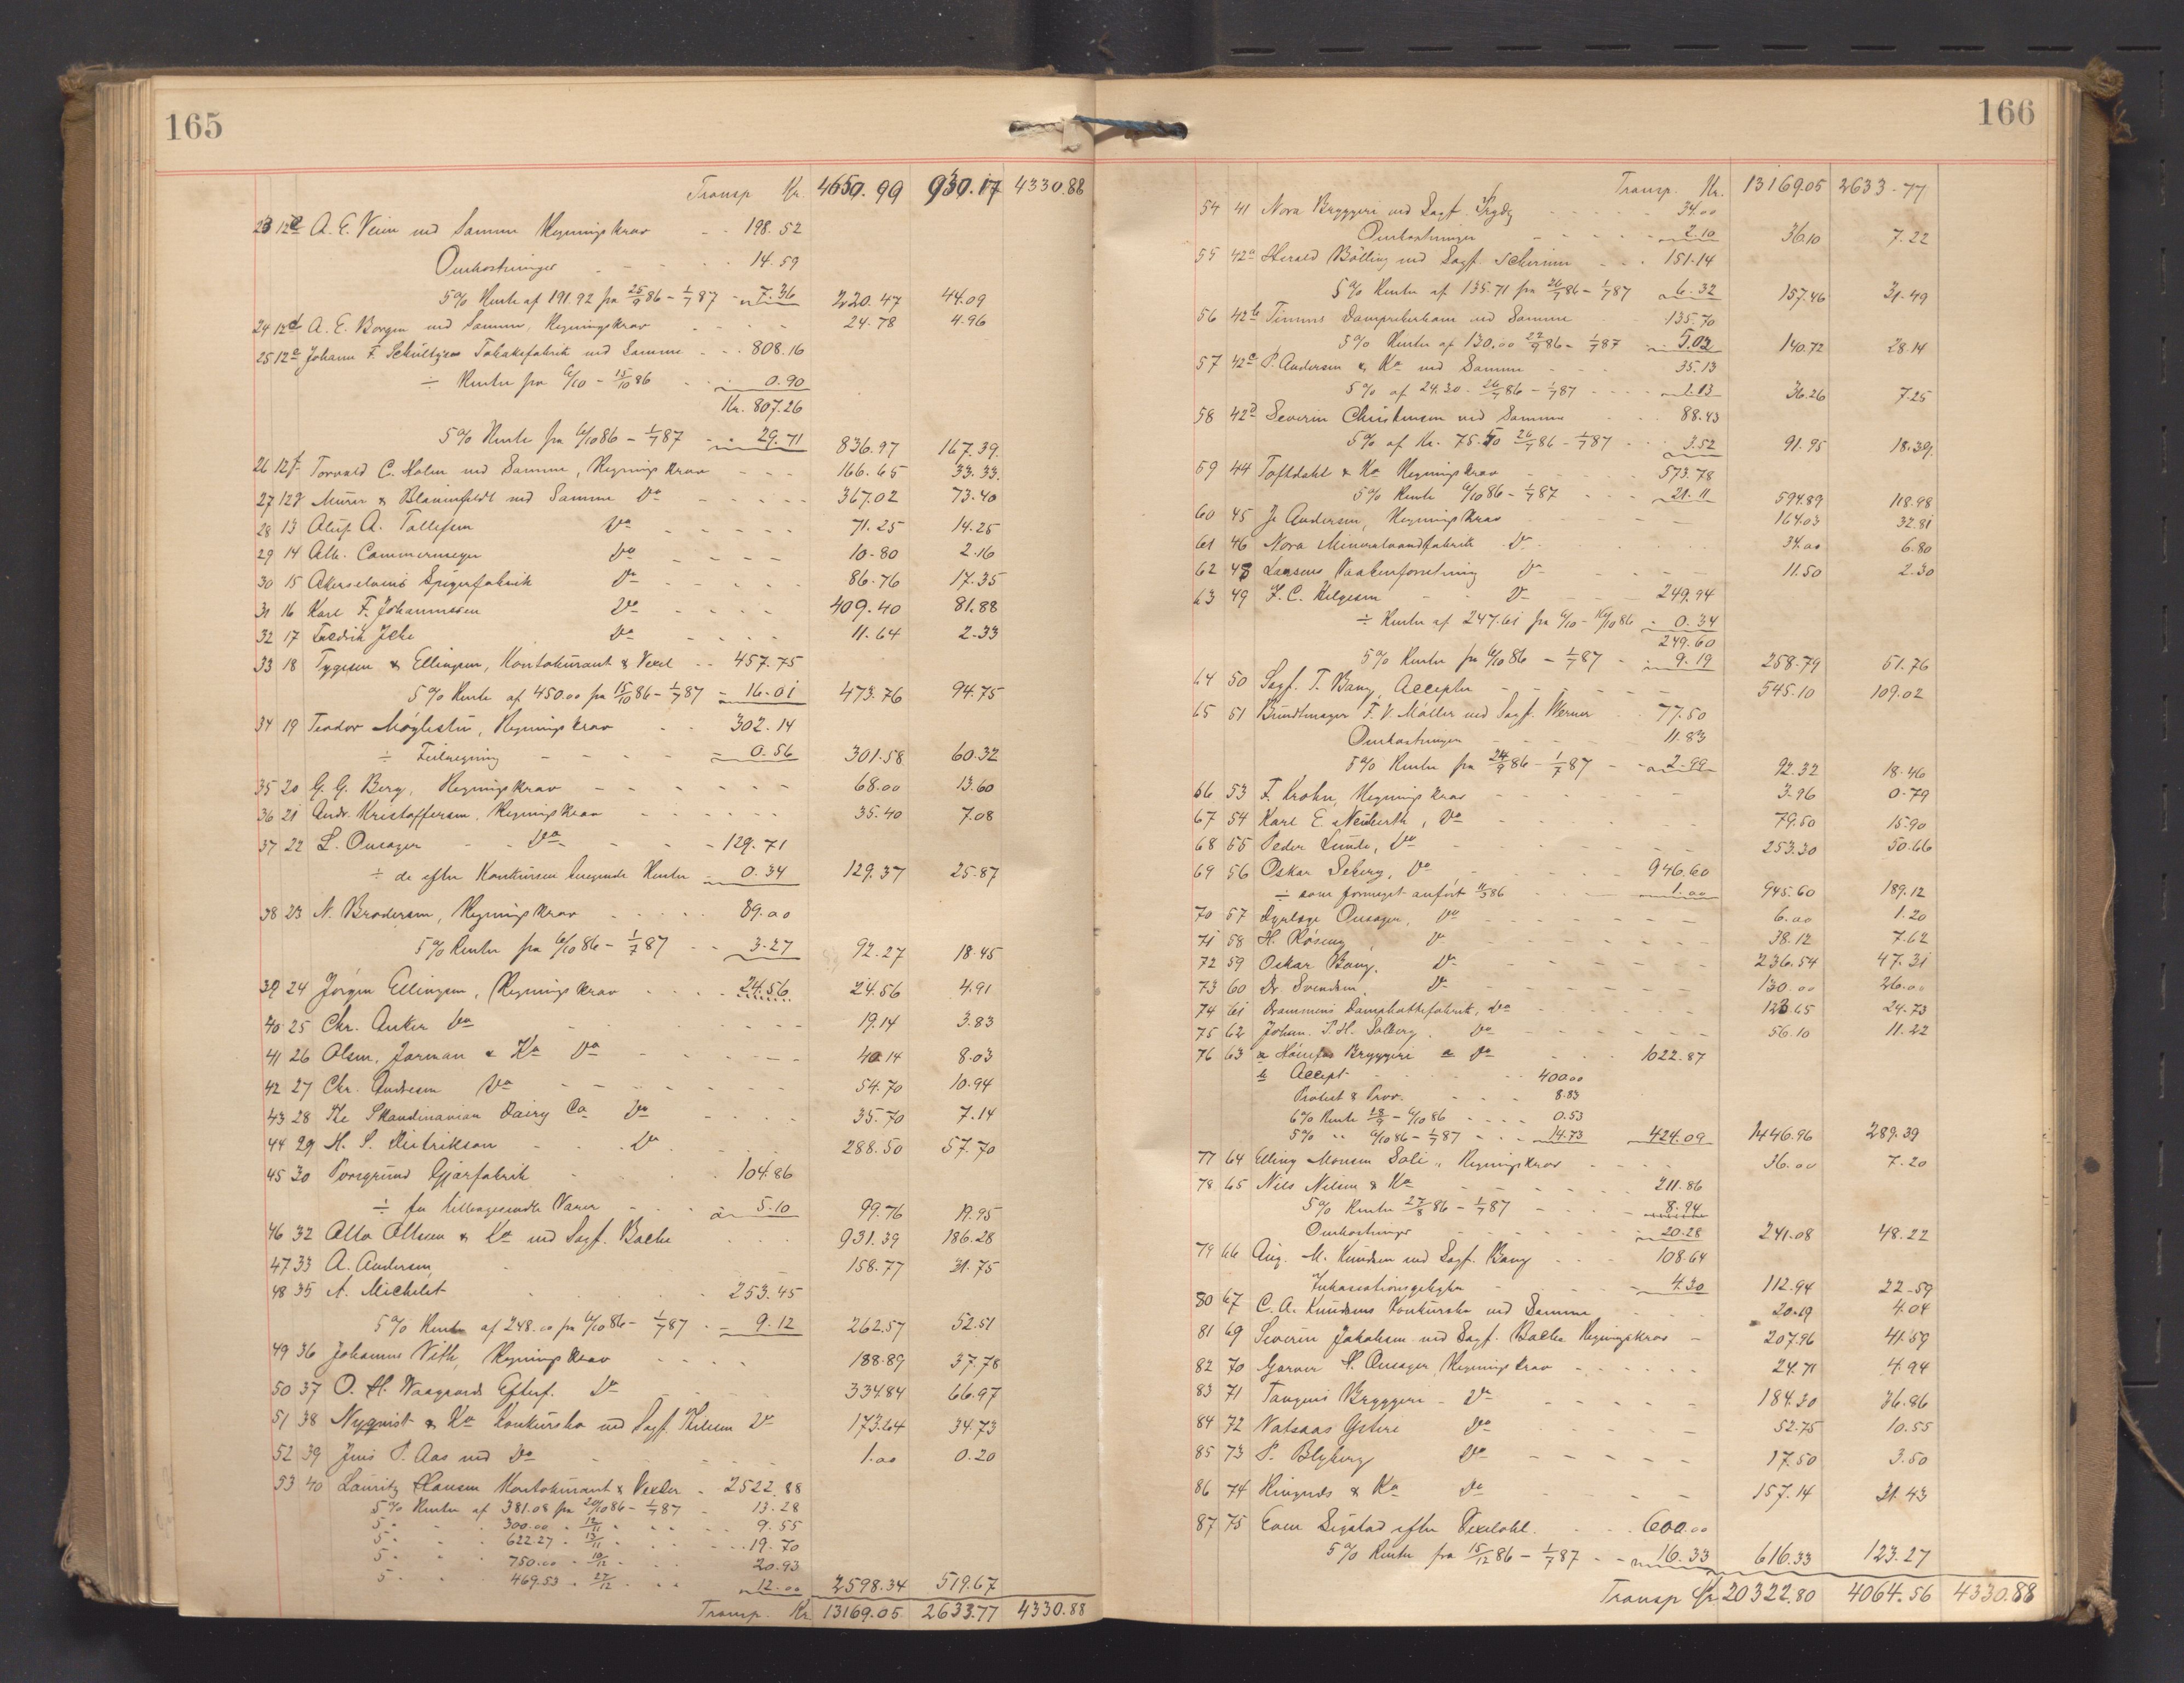 165
Transp Kr. 4650.99 930.17 4330.88
23 12c A. E. Veum ved Samme Regningskrav - - 198.52
Omkostninger - - - 14.59
5% Rente af 191.92 fra 25/9 86 - 1/7 87 - 7.36 220.47 44.09
24 12d A. E. Borgen ved Samme, Regningskrav - - - 24.78 4.96
25 12e Johann F. Schültzens Tobaksfabrik ved Samme - - 808.16
÷ Renter fra 6/10 - 15/10 86 - - 0.90
Kr. 807.26
5% Rente fra 6/10 86 - 1/7 87 - - 29.71 836.97 167.39.
26 12f Torvald C. Holm ved Samme, Regningskrav - - - 166.65 33.33.
27 12g Murer & Blauenfeldt ved Samme Do - - - - 367.02 73.40
28 13 Aluf A. Tollefsen Do - - - - 71.25 14.25
29 14 Alb. Cammermeyer Do - - - - 10.80 2.16
30 15 Akerselvens Spigerfabrik Do - - - - 86.76 17.35
31 16 Karl F. Johannessen Do - - - - 409.40 81.88
32 17 Fredrik Jebe Do - - - - 11.64 2.33
33 18 Tygesen & Ellingsen, Kontokurant & Vexel - - 457.75
5% Rente af 450.00 fra 15/10 86 - 1/7 87 - 16.01 473.76 94.75
34 19 Teodor Møglestue, Regningskrav - - 302.14
÷ Feilregning - - - - 0.56 301.58 60.32
35 20 G. G. Berg, Regningskrav - - - - - - 68.00 13.60
36 21 Andr. Kristoffersen, Regningskrav - - - - - 35.40 7.08
37 22 L. Onsager - - Do - - - 129.71
÷ de efter Konkursen beregnede Renter - 0.34 129.37 25.87
38 23 N. Brodersen, Regningskrav - - - - 89.00
5% Renter fra 6/10 86 - 1/7 87 - - 3.27 92.27 18.45
39 24 Jørgen Ellingsen, Regningskrav - - - - 24.56 24.56 4.91
40 25 Chr. Anker Do - - - - - 19.14 3.83
41 26 Olsen, Jorman & Ko Do - - - - - 40.14 8.03
42 27 Chr. Andresen Do - - - - - - 54.70 10.94
43 28 The Skandinavian Dairy Co. Do - - - - 35.70 7.14
44 29 H. S. Didrikson - - - Do - - - 288.50 57.70
45 30 Porsgrund Gjærfabrik - - - - 104.86
÷ for tilbagesendte Varer - - - 5.10 99.76 19.95
46 32 Otto Ottesen & Ko ved Sagf. Bache - - - 931.39 186.28
47 33 A. Andersen - - - 158.77 31.75
48 35 A. Michelet - - - - - 253.45
5% Rente af 248.00 fra 6/10 86 - 1/7 87 - - 9.12 262.57 52.51
49 36 Johannes Vith, Regningskrav - - - - 188.89 37.78
50 37 O. H. Vaagaards Efterf. Do - - - 334.84 66.97
51 38 Nyqvist & Ko Konkursbo ved Sagf. Do 173.64 34.73
52 39 Jens P. Aas ved Do - - - - - 1.00 0.20
53 40 Lauritz Clausen Kontokurant & Vexler - 2522.88
5% Renter af 381.08 fra 20/10 86 - 1/7 87 - 13.28
5 " - - 300.00 - 12/11 " - - - 9.55
5 " - - 622.27 - 13/11 " - - - 19.70
5 " - - 750.00 - 10/12 - - - 20.93
5 " - - 469.53 - 27/12 - - - 12.00 2598.34 519.67
Transp. Kr 13169.05 2633.77 4330.88
166
Transp. Kr. 13169.05 2633.77
54 41 Nora Bryggeri ved Sagf. - - - - 34.00
Omkostninger - - - - - 2.10 36.10 7.22
55 42a Harald Bölling ved Sagf. Scheen - - - 151.14
5% Renter af 135.71 fra 26/7 86 - 1/7 87 6.32 157.46 31.49
56 42b Timms Dampskebbani ved Samme - - 135.70
5% Renter af 130.00 22/9 86 - 1/7 87 - - 5.02 140.72 28.14
57 42c P. Andersen & Ko ved Samme - - - 35.13
5% af 24.30 - 26/7 86 - 1/7 87 - - - - 1.13 36.26 7.25
58 42d Severin Christensen ved Samme - - - 88.43
5% af Kr. 75.50 26/7 86 - 1/7 87 - - - 3.52 91.95 18.39.
59 44 Toftdahl & Ko Regningskrav - - - - 573.78
5% Rente 6/10 86 - 1/7 87 - - - 21.11 594.89 118.98
60 45 Jr Andersen, Regningskrav - - - - - 164.03 32.81
61 46 Nora Mineralvandfabrik Do - - - - 34.00 6.80
62 48 Larsens Vaabenforretning Do - - - - 11.50 2.30
63 49 F. C. Helgesen - - Do - - - - 249.94
÷ Renter af 247.61 fra 6/10 - 16/10 86 - 0.34
249.60
5% Renter fra 6/10 86 - 1/7 87 - - 9.19 258.79 51.76
64 50 Sagf. T. Bang, Accepter - - - - - - 545.10 109.02
65 51 Bundtmager F. V. Møller ved Sagf. Werner - - 77.50
Omkostninger - - - - 11.83
5% Renter fra 24/9 86 - 1/7 87 - - 2.99 92.32 18.46
66 53 F. Krohn, Regningskrav - - - - - - 3.96 0.79
67 54 Karl E. Neuberth, Do - - - - - 79.50 15.90
68 55 Peder Lunde, Do - - - - - - 253.30 50.66
69 56 Oskar Seberg, Do - - - - - 946.60
÷ som formeget anført 11/3 86 - - - 1.00 945.60 189.12
70 57 Dyrlæge Onsager, Do - - - - - - - 6.00 1.20
71 58 H. Røseng, Do - - - - - - - 38.12 7.62
72 59 Oskar Bang, Do - - - - - - 236.54 47.31
73 60 Dr. Svendsen, Do - - - - - - 130.00 26.00
74 61 Drammens Damphattefabrik, Do - - - - - - 123.65 24.73
75 62 Johan P. H. Solberg, Do - - - - - - - 56.10 11.22
76 63 a Bryggeri a Do - - - 1022.87
b Accept - - - - - - 400.00
Protest & Prov. - - - 8.83
6% Rente 28/9 - 6/10 86 - - - - 0.53
5% " 6/10 86 - 1/7 87 - - - 14.73 424.09 1446.96 289.39
77 64 Elling Monsen Soli, Regningskrav - - - - 36.00 7.20
78 65 Nils Nilsen & Ko - - - - - 211.86
5% Renter 27/8 86 - 1/7 87 - - - 8.94
Omkostninger - - - - - - 20.28 241.08 48.22
79 66 Aug. M. Knudsen ved Sagf. Bang - - - 108.64
Inkassationsgebyhr - - 4.30 112.94 22.59
80 67 C. A. Knudsens Konkursbo ved Samme - - - 20.19 4.04
81 69 Severin Jakobsen ved Sagf. Bache Regningskrav - 207.96 41.59
82 70 Garver H. Onsager, Regningskrav - - - - - - 24.71 4.94
83 71 Tangens Bryggeri - Do - - - - - 184.30 36.86
84 72 Vatsaas Ysteri Do - - - - - - 52.75 10.55
85 73 P. Blyberg Do - - - - - 17.50 3.50
86 74 Ringnes & Ko Do - - - - 157.14 31.43
87 75 Even Sigstad efter Vexelobl. - - - 600.00
5% Rente fra 15/12 86 - 1/7 87 - - 16.33 616.33 123.27
Transp Kr 20322.80 4064.56 4330.88